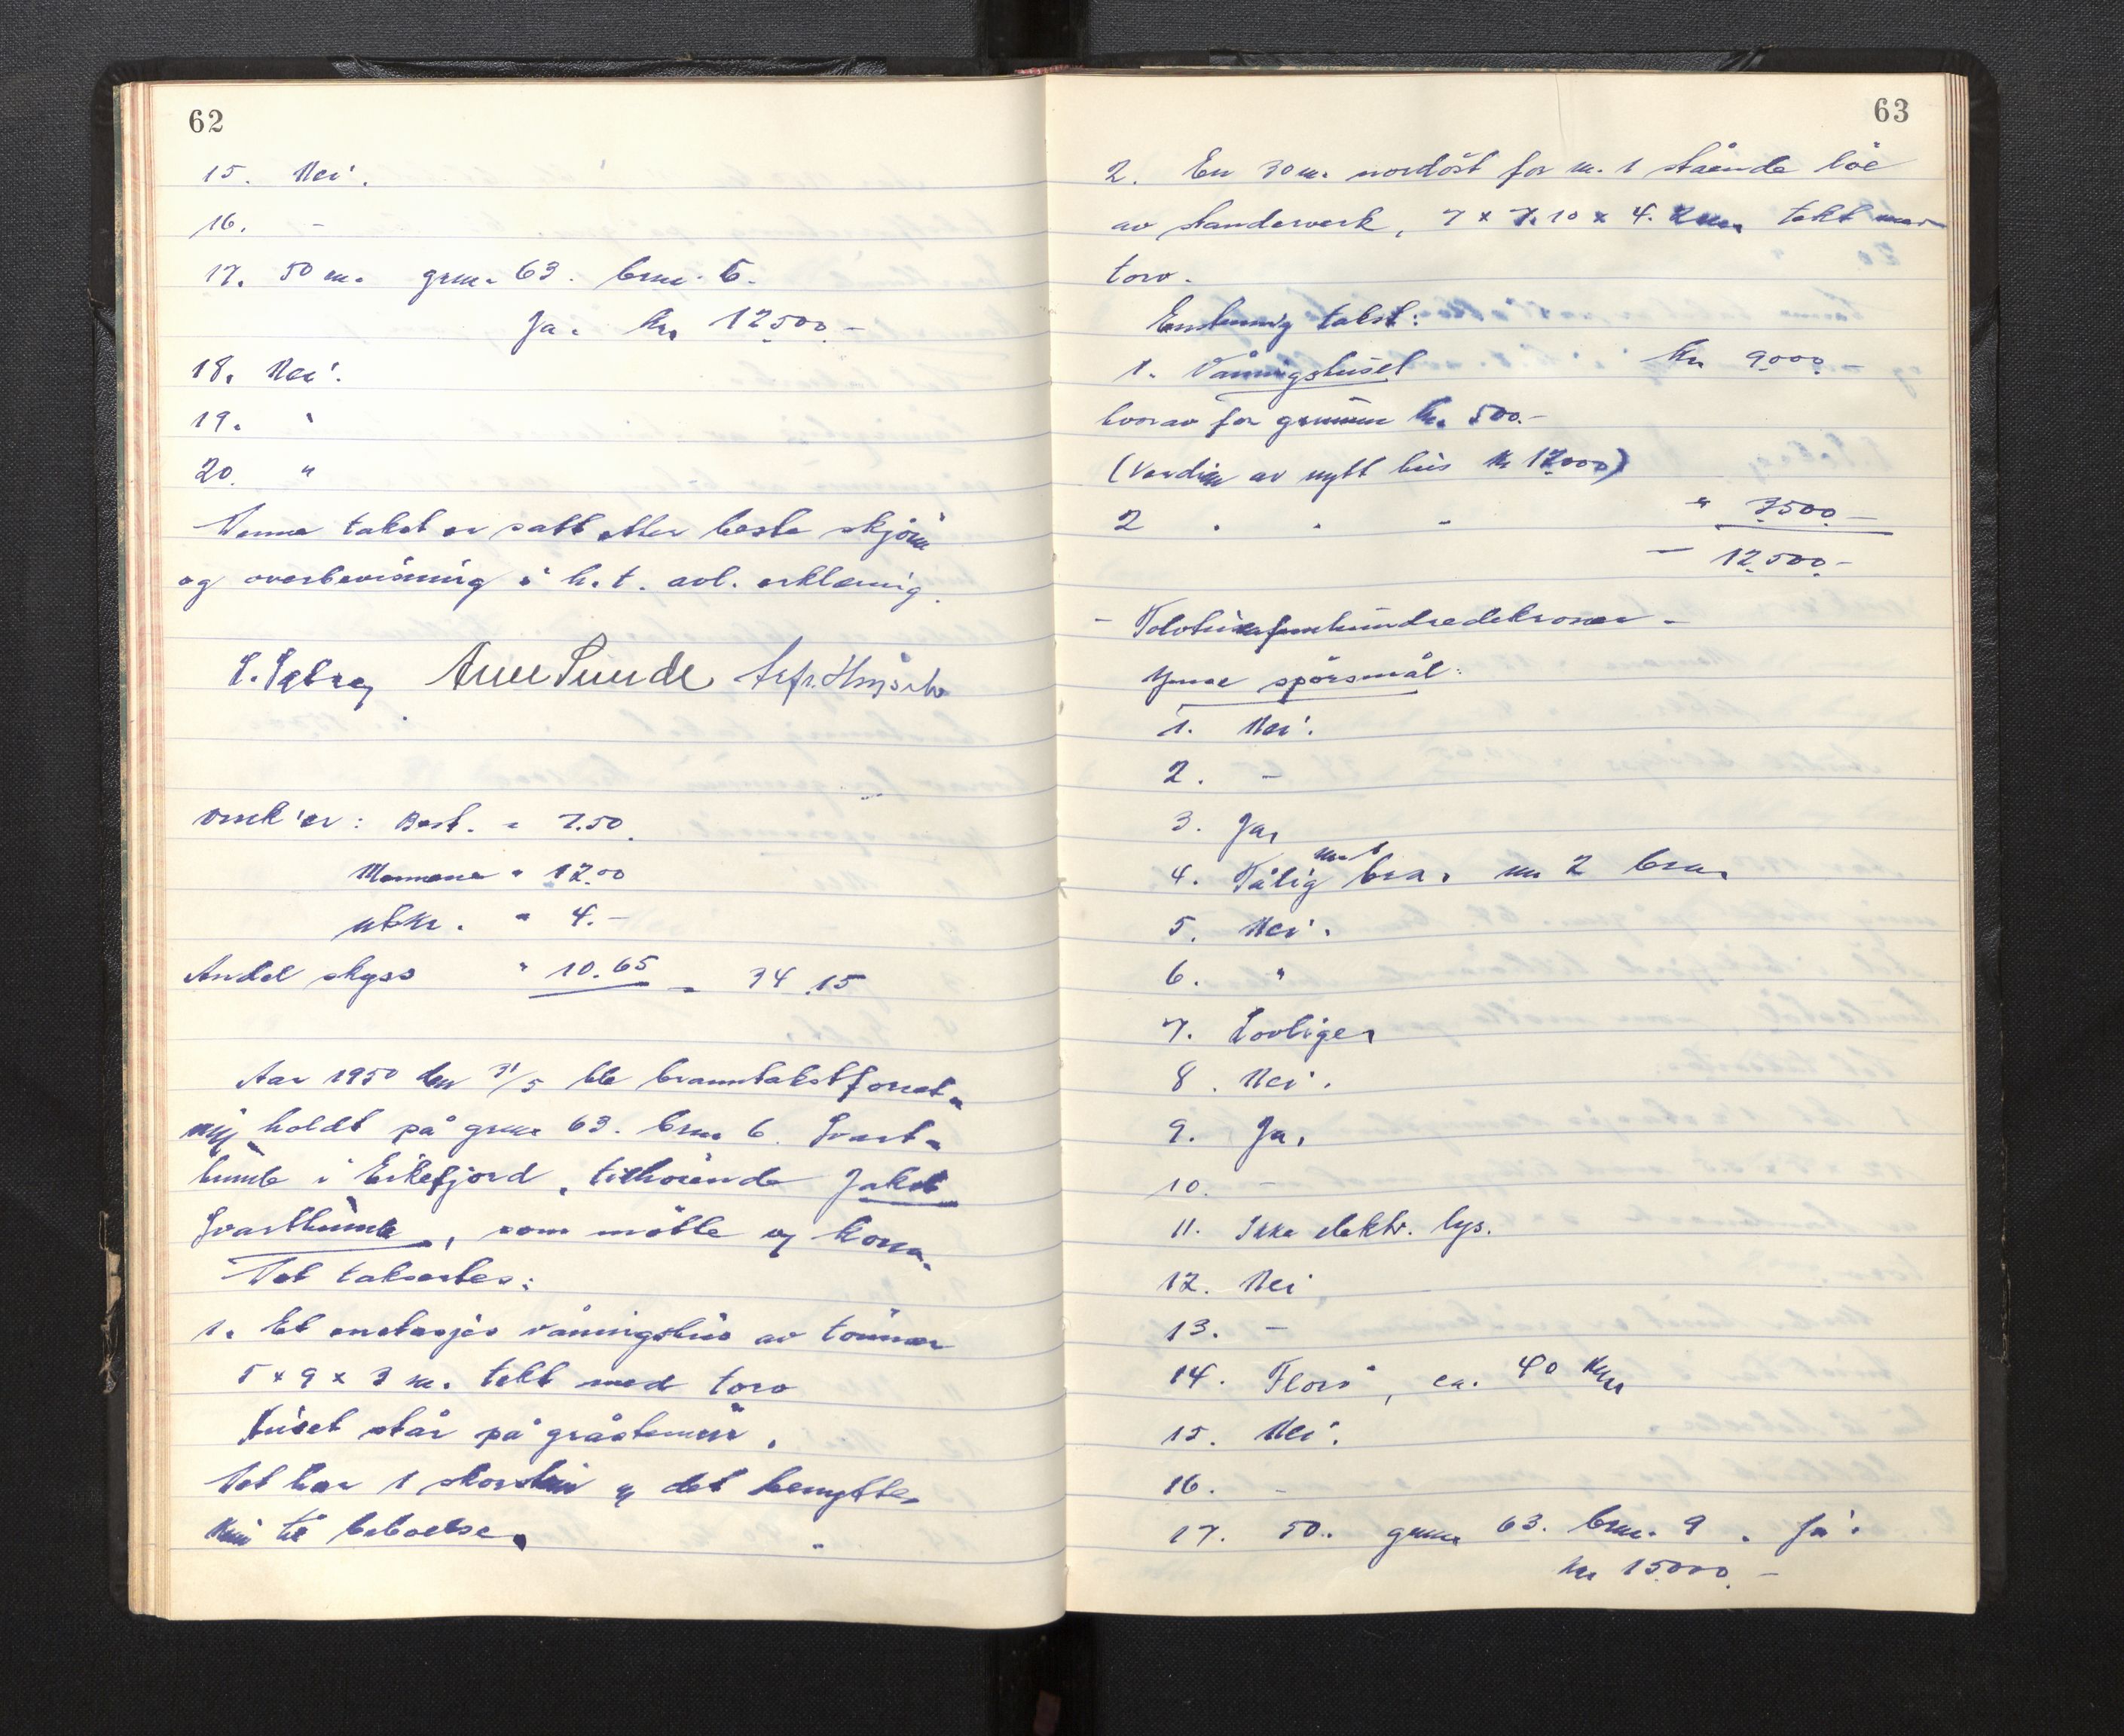 62
15. Nei.
16. -
17. 50 m. grnr. 63. brnr. 6.
Ja. kr. 12500.-
18. Nei.
19. "
20. "
Denne takst er satt etter beste skjønn
og overbevisning i h.t. avl. erklæring.
Arne Sunde
Best. = 7.50
Mennene " 12.00
utkr. " 4.-
Andel skyss " 10.65 = 34.15
Aar 1950 den 31/5 ble branntakstforret-
ning holdt på grnr 63. brnr 6. Svart-
humle i Eikefjord, tilhörende Jakob
Svarthumle, som mötte og kona.
Det takseres:
1. Et enetasjes våningshus av tömmer
5 x 9 x 3 m. tekt med torv
Huset står på gråstensmur.
Det har 1 skorstein og det benyttes
kun til beboelse.
63
2. En 30 m. nordöst for nr. 1 stående löe
av standerverk, 7 x 7.10 x 4. tekt med
torv.
Enstemmig takst:
1. Våningshuset kr. 9000.-
hvorav for grunnmur kr. 500.-
(Verdien av nytt hus kr 12000)
2 " " " " 3500.-
- 12.500.-
- Tolvtusenfemhundredekroner -
Ymse spörsmål:
1. Nei.
2. -
3. Ja,
4. Tålig bra. nr. 1 nr 2 bra.
5. Nei.
6. "
7. Lovlige.
8. Nei.
9. Ja,
10. -
11. Ikke elektr. lys.
12. Nei
13. -
14. Florö, ca. 40 km
15. Nei.
16. -
17. 50. grnr. 63. brnr. 9. Ja.
kr 15000.-